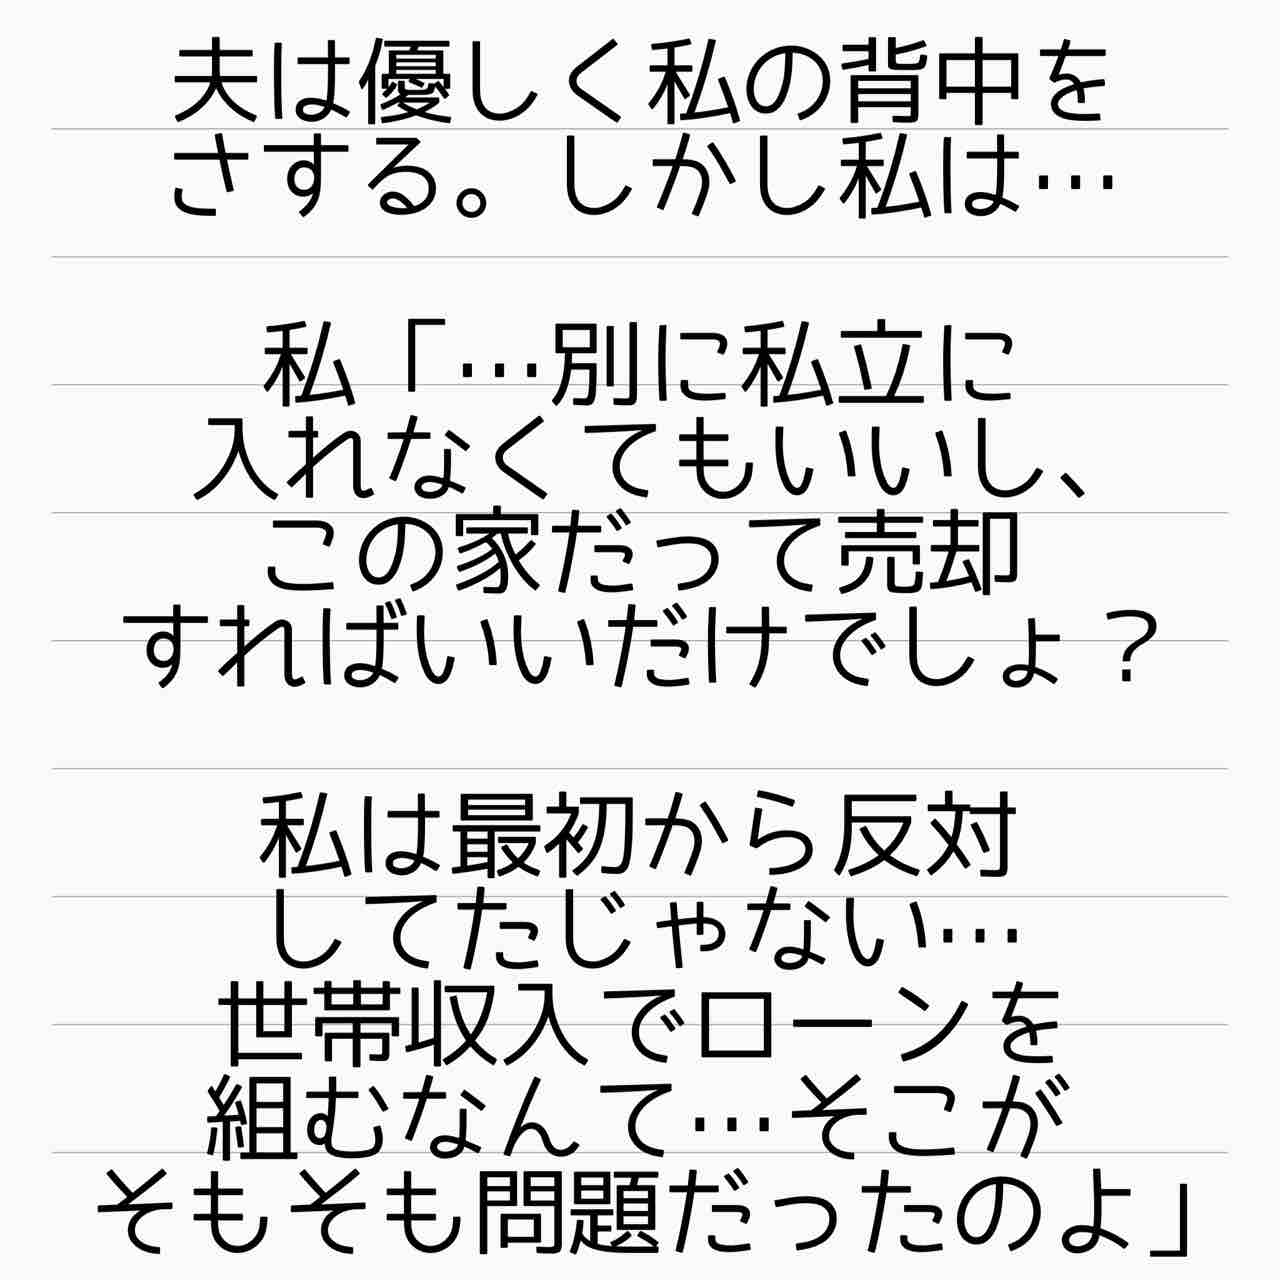 夫は優しく私の背中を
さする。しかし私は…
私「…別に私立に
入れなくてもいいし、
この家だって売却
すればいいだけでしょ？
私は最初から反対
してたじゃない…
世帯収入でローンを
組むなんて…そこが
そもそも問題だったのよ」